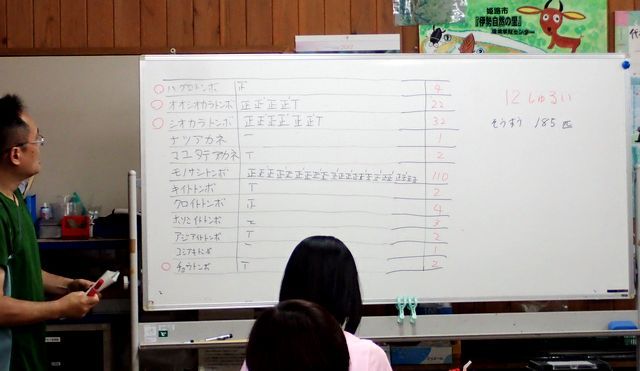 姫路市
『伊勢自然の里』
環境学習センター
○ ハグロトンボ 正 4
○ オオシオカラトンボ 正正正正T 22
○ シオカラトンボ 正正正正正正T 32
ナツアカネ 一 1
マユタテアカネ T 2
モノサシトンボ 正正正正正正正正正正正正正正正正正正正正正正 110
キイトトンボ T 2
クロイトトンボ 正 4
ホソミイトトンボ 3
アジアイトトンボ T 2
コシアキトンボ 一 1
○ チョウトンボ T 2
12しゅるい
そうすう 185匹